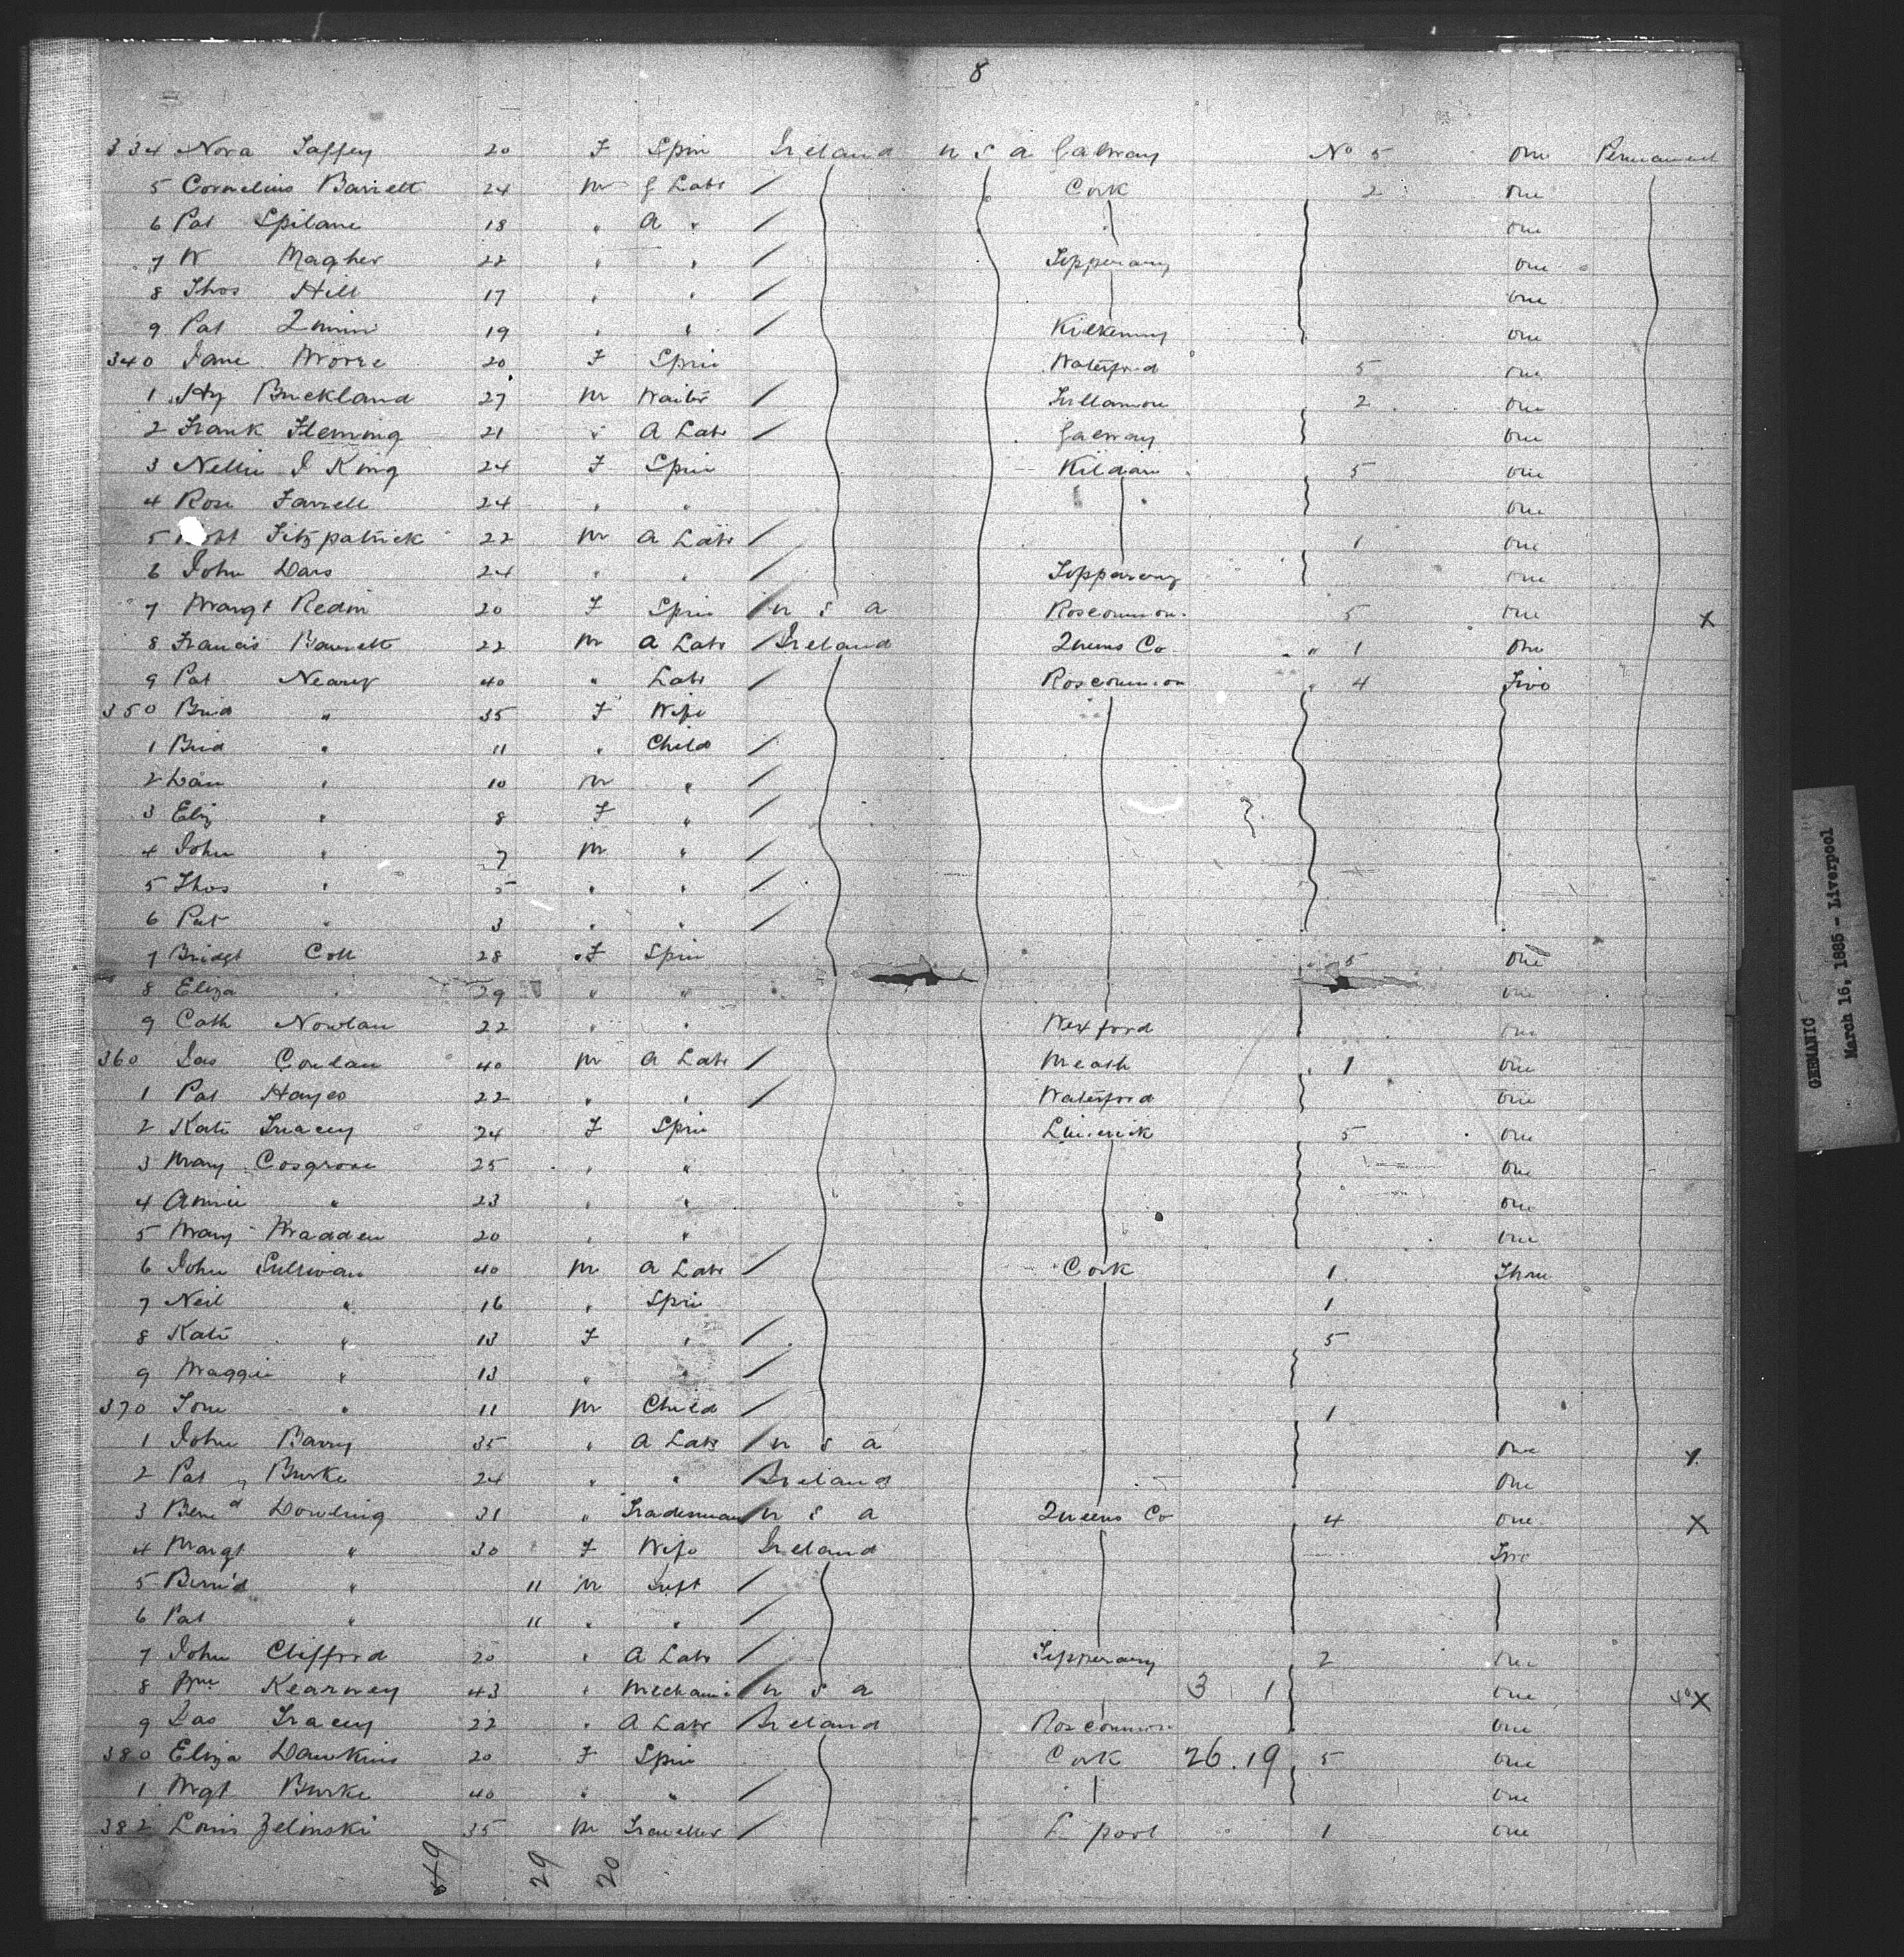 8
334 Nora Taffey 20 F Spin Ireland U S A Galway No 5 One Permanent
5 Cornelius Barrett 24 M G Labr / Cork 2 One
6 Pat Spilane 18 " A " / One
7 W Magher 22 " " / Tipperary One
8 Thos Hill 17 " " / One
9 Pat 19 " " / Kilkenny One
340 Jane Moore 20 F Spin Waterford 5 One
1 Hy Buckland 27 M Waiter / Tullamore 2 One
2 Frank Fleming 21 " A Labr / Galway One
3 Nellie J King 24 F Spin Kildare 5 One
4 Rose Farrell 24 " " One
5 Fitzpatrick 22 M A Labr / 1 One
6 John 24 " " / Tipperary One
7 Margt Redin 20 F Spin / U S A Roscommon 5 One X
8 Francis Barrett 22 M A Labr / Ireland Queens Co " 1 One
9 Pat Neary 40 " Labr / Roscommon " 4 Two
350 Brid " 35 F Wife
1 Brid " 11 " Child /
2 Dan " 10 M " /
3 Eliz " 8 F " /
4 John " 7 M " /
5 Thos " 5 " " /
6 Pat " 3 " " /
7 Bridgt Coll 28 F Spin 5 One
8 Eliza " 29 " " One
9 Cath Nowlan 22 " " Wexford One
360 Jas Conlan 40 M A Labr / Meath " 1 One
1 Pat Hayes 22 " " / Waterford One
2 Kate Tracey 24 F Spin Limerick 5 One
3 Mary Cosgrove 25 " " One
4 Annie " 23 " " One
5 Mary Madden 20 " " One
6 John Sullivan 40 M A Labr / Cork 1 Three
7 Neil " 16 " Spin 1
8 Kate " 13 F " / 5
9 Maggie " 13 " " /
370 Tom " 11 M Child / 1
1 John Barry 35 " A Labr / U S A One X
2 Pat Burke 24 " " / Ireland One
3 Bernd Dowling 31 " Tradesman / U S A Queens Co 4 One X
4 Margt " 30 F Wife Ireland Two
5 Bern'd " 11 M Inft /
6 Pat " 11 " " /
7 John Clifford 20 " A Labr / Tipperary 2 One
8 Wm Kearney 43 " Mechanic / U S A 3 1 One X
9 Jas Tracey 22 " A Labr / Ireland Roscommon One
380 Eliza Dawkins 20 F Spin Cork 26.19 5 One
1 Mgt Burke 40 " " / One
382 Louis Zelinski 35 M Traveller / L pool 1 One
49 29 20
GERMANIC
March 16, 1885 - Liverpool